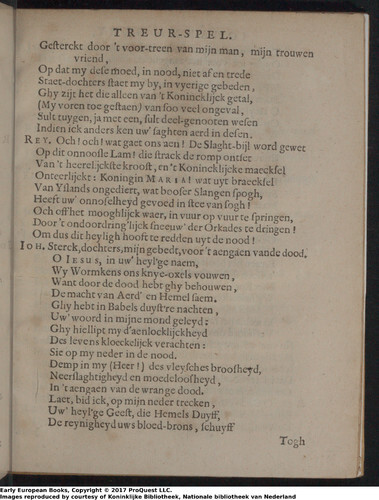 TREUR-SPEL.
Gesterckt door 't voor-treen van mijn man, mijn trouwen
vriend,
Op dat my dese moed, in nood, niet af en trede
Staet-dochters staet my by, in vyerige gebeden,
Ghy zijt het die alleen van 't Koninklijck getal,
(My voren toe gestaen) van soo veel ongeval,
Sult tuygen, ja met een, sult deel-genooten wesen
Indien ick anders ken uw' saghten aerd in desen.
REY. Och! och! wat gaet ons aen! De Slaght-bijl word gewet
Op dit onnoosle Lam! die strack de romp ontset
Van 't heerelijckste kroost, en 't Koninklijcke maecksel
Onteerlijckt: Koningin MARIA! wat uyt braecksel
Van Yslands ongediert, wat booser Slangen spogh,
Heeft uw' onnoselheyd gevoed in stee van sogh!
Och off het mooghlijck waer, in vuur op vuur te springen,
Door 't ondoordring'lijck sneeuw' der Orkades te dringen!
Om dus dit heyligh hooft te redden uyt de nood!
IOH. Sterck, dochters, mijn gebedt, voor 't aengaen vande dood.
O IESUS, in uw' heyl'ge naem,
Wy Wormkens ons knye-oxels vouwen,
Want door de dood hebt ghy behouwen,
De macht van Aerd' en Hemel saem.
Ghy hebt in Babels duyst're nachten,
Uw' woord in mijne mond geleyd:
Ghy hiellipt my d'aenlocklijckheyd
Des levens kloeckelijck verachten:
Sie op my neder in de nood.
Demp in my (Heer!) des vleysches broosheyd,
Neerslaghtigheyd en moedeloosheyd,
In 't aengaen van de wrange dood.
Laet, bid ick, op mijn neder trecken,
Uw' heyl'ge Geest, die Hemels Duyff,
De reynigheyd uws bloed-brons, schuyff
Togh
Early European Books, Copyright © 2017 ProQuest LLC.
Images reproduced by courtesy of Koninklijke Bibliotheek, Nationale bibliotheek van Nederland